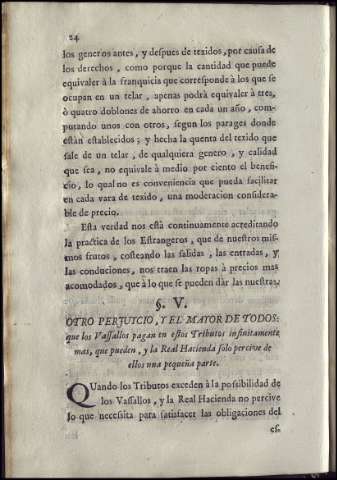 24
los generos antes, y despues de texidos, por causa de
los derechos, como porque la cantidad que puede
equivaler à la franquicia que corresponde à los que se
ocupan en un telar, apenas podrà equivaler à tres,
ò quatro doblones de ahorro en cada un año, com-
putando unos con otros, segun los parages donde
estàn establecidos; y hecha la quenta del texido que
sale de un telar, de qualquiera genero, y calidad
que sea, no equivale à medio por ciento el benefi-
cio, lo qual no es conveniencia que pueda facilitar
en cada vara de texido, una moderacion considera-
ble de precio.
Esta verdad nos està continuamente acreditando
la practica de los Estrangeros, que de nuestros mis-
mos frutos, costeando las salidas, las entradas, y
las conduciones, nos traen las ropas à precios mas
acomodados, que à lo que se pueden dàr las nuestras.
§. V.
OTRO PERJUICIO, Y EL MAYOR DE TODOS:
que los Vassallos pagan en estos Tributos infinitamente
mas, que pueden, y la Real Hacienda solo percive de
ellos una pequeña parte.
Quando los Tributos exceden à la possibilidad de
los Vassallos, y la Real Hacienda no percive
lo que necessita para satisfacer las obligaciones del
es-